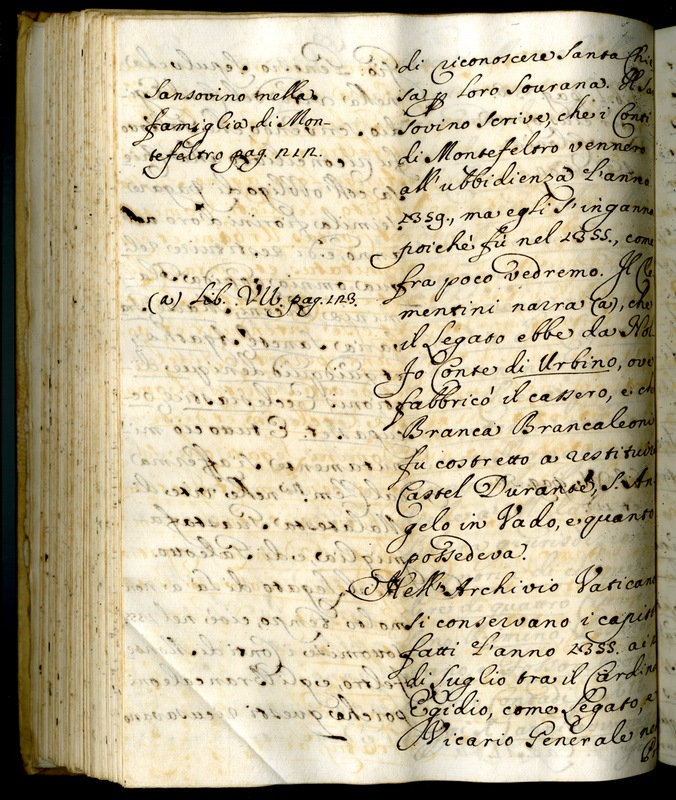 Sansovino nella
famiglia di Mon-
tefeltro pag. 212.
(a) Lib. VII. pag. 123.
di riconoscere Santa Chie
sa p loro Sourana. Il Sa
sovino scrive, che i Conti
di Montefeltro vennero
all'ubbidienza l'anno
1359., ma egli s'inganna
poiché fù nel 1355., come
fra poco vedremo. Il Cle
mentini narra (a), che
il Legato ebbe da Nol
fo Conte di Urbino, ove
fabbricò il cassero, e ch
Branca Brancaleoni
fu costretto a restituire
Castel Durante, S. An
gelo in Vado, e quanto
possedeva.
Nell'Archivio Vaticano
si conservano i capito
fatti l'anno 1355. ai
di Luglio tra il Cardina
Egidio, come Legato, e
Vicario Generale ne